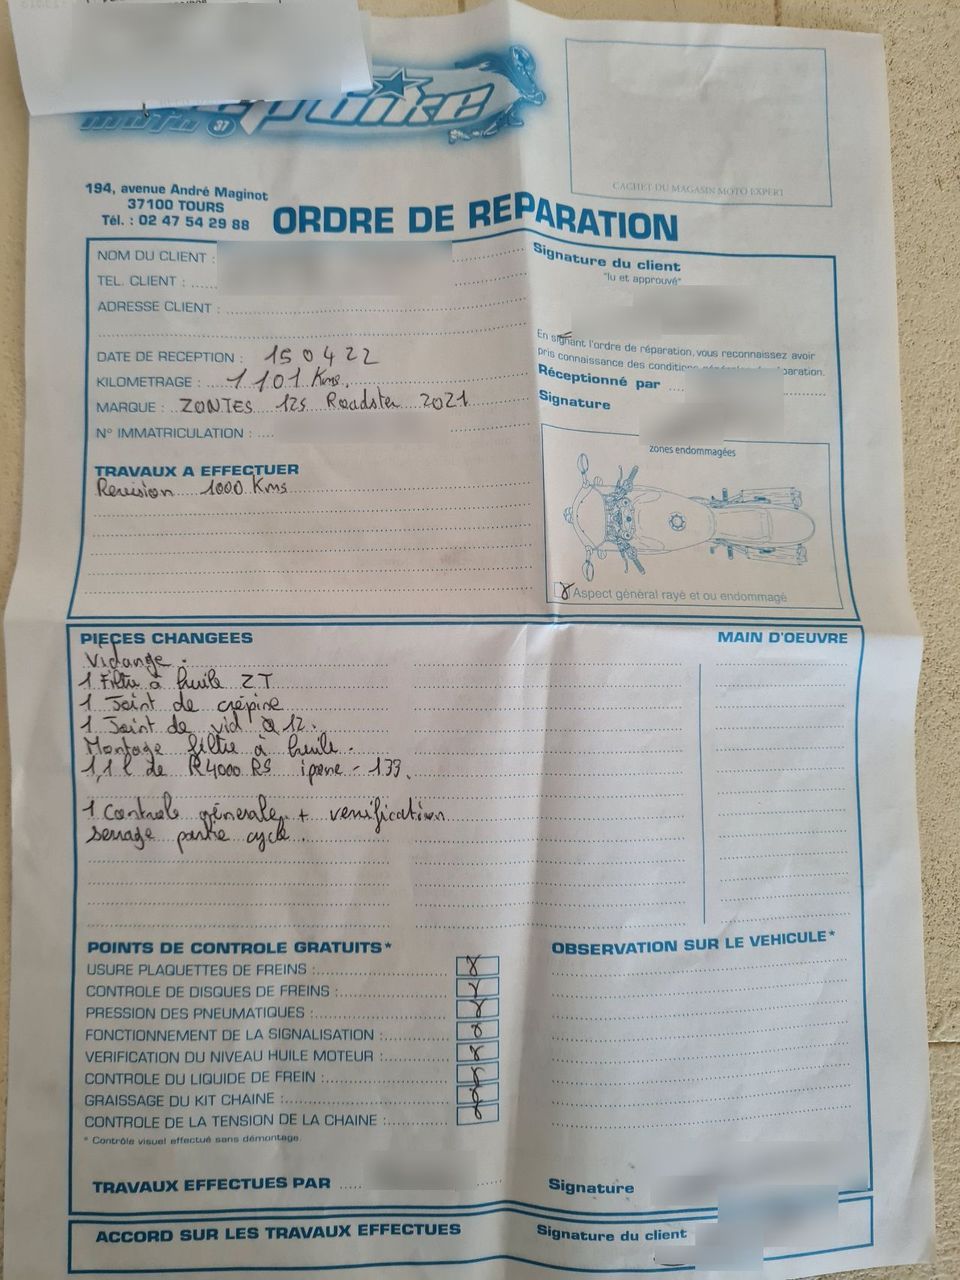 MOTO 37
CACHET DU MAGASIN MOTO EXPERT
194, avenue André Maginot
37100 TOURS
Tél. : 02 47 54 29 88
ORDRE DE REPARATION
NOM DU CLIENT :
TEL. CLIENT :
ADRESSE CLIENT :
DATE DE RECEPTION : 150422
KILOMETRAGE : 1101 Kms.
MARQUE : ZONTES 125 Roadster 2021
N° IMMATRICULATION :
Signature du client
"lu et approuvé"
En signant l'ordre de réparation, vous reconnaissez avoir
pris connaissance des conditions générales de réparation.
Réceptionné par
Signature
TRAVAUX A EFFECTUER
Revision 1000 Kms
zones endommagées
Aspect général rayé et ou endommagé
PIECES CHANGEES
MAIN D'OEUVRE
Vidange.
1 Filtre à huile ZT
1 Joint de crépine
1 Joint de vid 12.
Montage filtre à huile.
1,1 l de R4000 RS ipone - 133.
1 Controle générale + verrification
serrage partie cycle.
POINTS DE CONTROLE GRATUITS*
OBSERVATION SUR LE VEHICULE*
USURE PLAQUETTES DE FREINS :
CONTROLE DE DISQUES DE FREINS :
PRESSION DES PNEUMATIQUES :
FONCTIONNEMENT DE LA SIGNALISATION :
VERIFICATION DU NIVEAU HUILE MOTEUR :
CONTROLE DU LIQUIDE DE FREIN :
GRAISSAGE DU KIT CHAINE :
CONTROLE DE LA TENSION DE LA CHAINE :
* Contrôle visuel effectué sans démontage.
TRAVAUX EFFECTUES PAR
Signature
ACCORD SUR LES TRAVAUX EFFECTUES
Signature du client